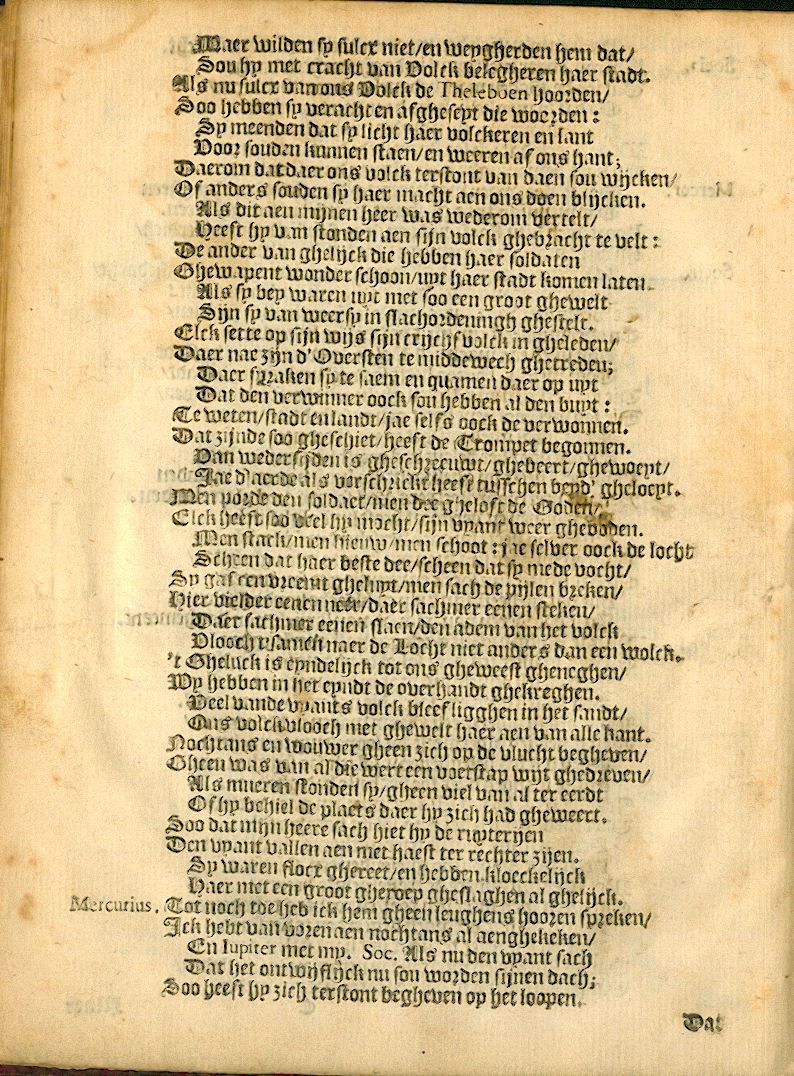 Maer wilden sy sulcx niet/en weygherden hem dat/
Sou hy met cracht van Volck belegheren haer stadt.
Als nu sulcx van ons Volck de Theleboen hoorden/
Soo hebben sy veracht en afgheseyt die woorden:
Sy meenden dat sy licht haer volckeren en lant
Voor souden kunnen staen/en weeren af ons hant;
Daerom dat daer ons volck terstont van daen sou wijcken/
Of anders souden sy haer macht aen ons doen blijcken.
Als dit aen mijnen heer was wederom vertelt/
Heeft hy van stonden aen sijn volck ghebracht te velt:
De ander van ghelijck die hebben haer soldaten
Ghewapent wonder schoon/uyt haer stadt komen laten.
Als sy bey waren uyt met soo een groot ghewelt
Sijn sy van weersy in slachordeningh ghestelt.
Elck sette op sijn wijs sijn crijchfvolck in gheleden/
Daer nae zijn d'Oversten te middewech ghetreden;
Daer spraken sy te saem en quamen daer op uyt
Dat den verwinner oock sou hebben al den buyt:
Te weten/stadt en landt/jae selfs oock de verwonnen.
Dat zijnde soo gheschiet/heeft de Trompet begonnen.
Van wedersijden is gheschreeuwt/ghebeert/ghewoept/
Jae d'aerde als verschrickt heeft tusschen beyd' gheloept.
Men porde den soldaet/men dee gheloft de Goden/
Elck heeft soo veel hy mocht/sijn vyant weer gheboden.
Men stack/men hieuw/men schoot: jae selver oock de locht
Scheen dat haer beste dee/scheen dat sy mede vocht/
Sy gaf een vreemt gheluyt/men sach de pijlen breken/
Hier vielder eenen neer/daer sachmer eenen steken/
Daer sachmer eenen slaen/den adem van het volck
Vlooch t'samen naer de Locht niet anders dan een wolck.
't Gheluck is eyndelijck tot ons gheweest gheneghen/
Wy hebben in het eyndt de overhandt ghekreghen.
Veel vande vyants volck bleef ligghen in het sandt/
Ons volck vlooch met ghewelt haer aen van alle kant.
Nochtans en wouwer gheen zich op de vlucht begheven/
Gheen was van al die wert een voetstap wijt ghedreven/
Als mueren stonden sy/gheen viel van al ter eerdt
Of hy behiel de plaets daer hy zich had gheweert.
Soo dat mijn heere sach hiet hy de ruyterijen
Den vyant vallen aen met haest ter rechter zijen.
Sy waren flocx ghereet/en hebben kloeckelijck
Haer met een groot gheroep gheslaghen al ghelijck.
Mercurius. Tot noch toe heb ick hem gheen leughens hooren spreken/
Ick hebt van voren aen nochtans al aenghekeken/
En Iupiter met my. Soc. Als nu den vyant sach
Dat het ontwijflijck nu sou worden sijnen dach;
Soo heeft hy zich terstont begheven op het loopen.
Dat